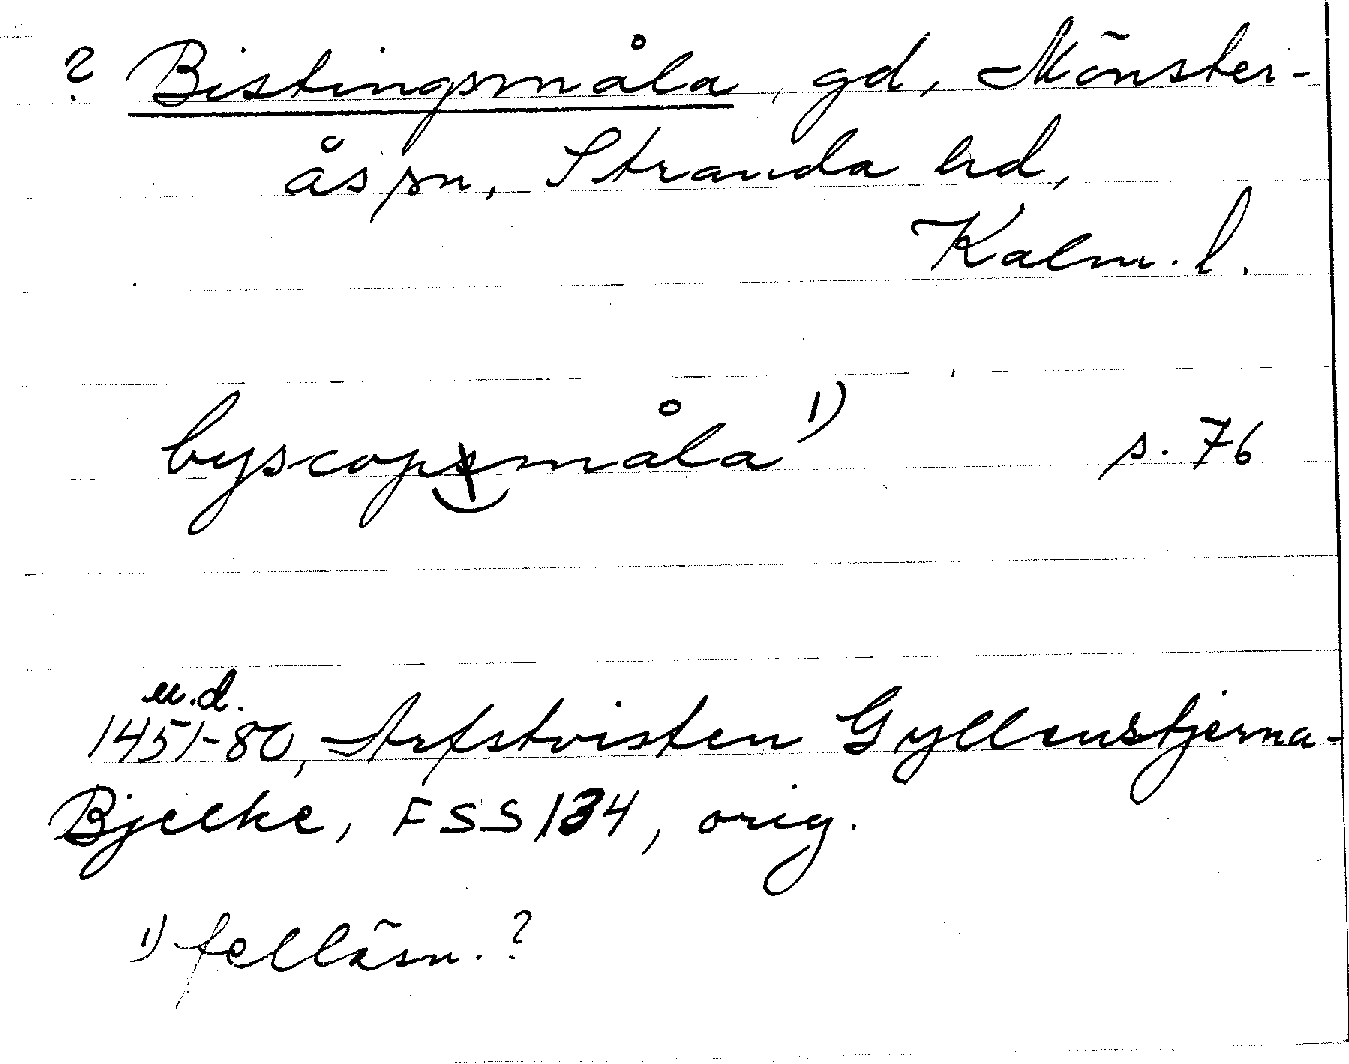 ? Bistingsmåla, gd, Mönster-
ås sn, Stranda hd,
Kalm. l.
byscopsmåla 1) s. 76
u.d.
1451-80, Arfstvisten Gyllenstjerna-
Bjelke, FSS 134, orig.
1) felläsn. ?